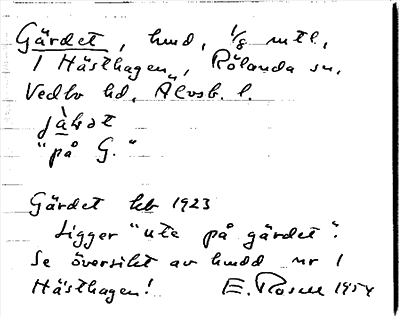 Gärdet, hmd, 1/8 mtl,
1 Hästhagen, Rölanda sn,
Vedbo hd, Älvsb. l.
"på G."
Gärdet leb 1923
Ligger "ute på gärdet".
Se översikt av hmdd nr 1
Hästhagen! E. Rosell 1954